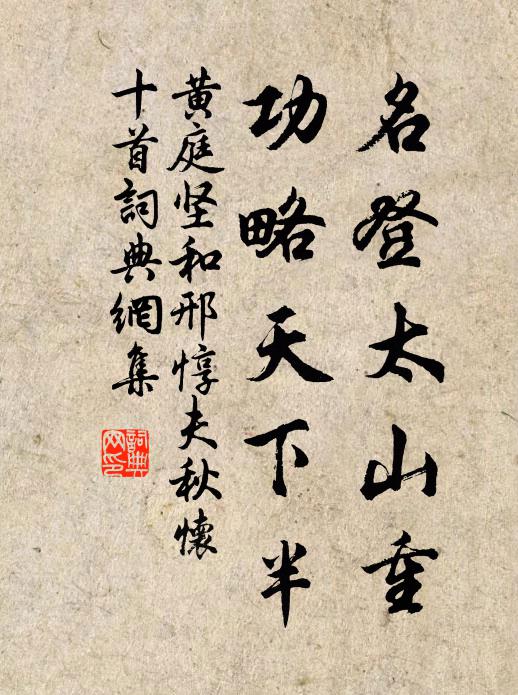 名登太山重
功略天下半
黄庭坚和邢惇夫秋懷
十首詞典網集
詞典
网印